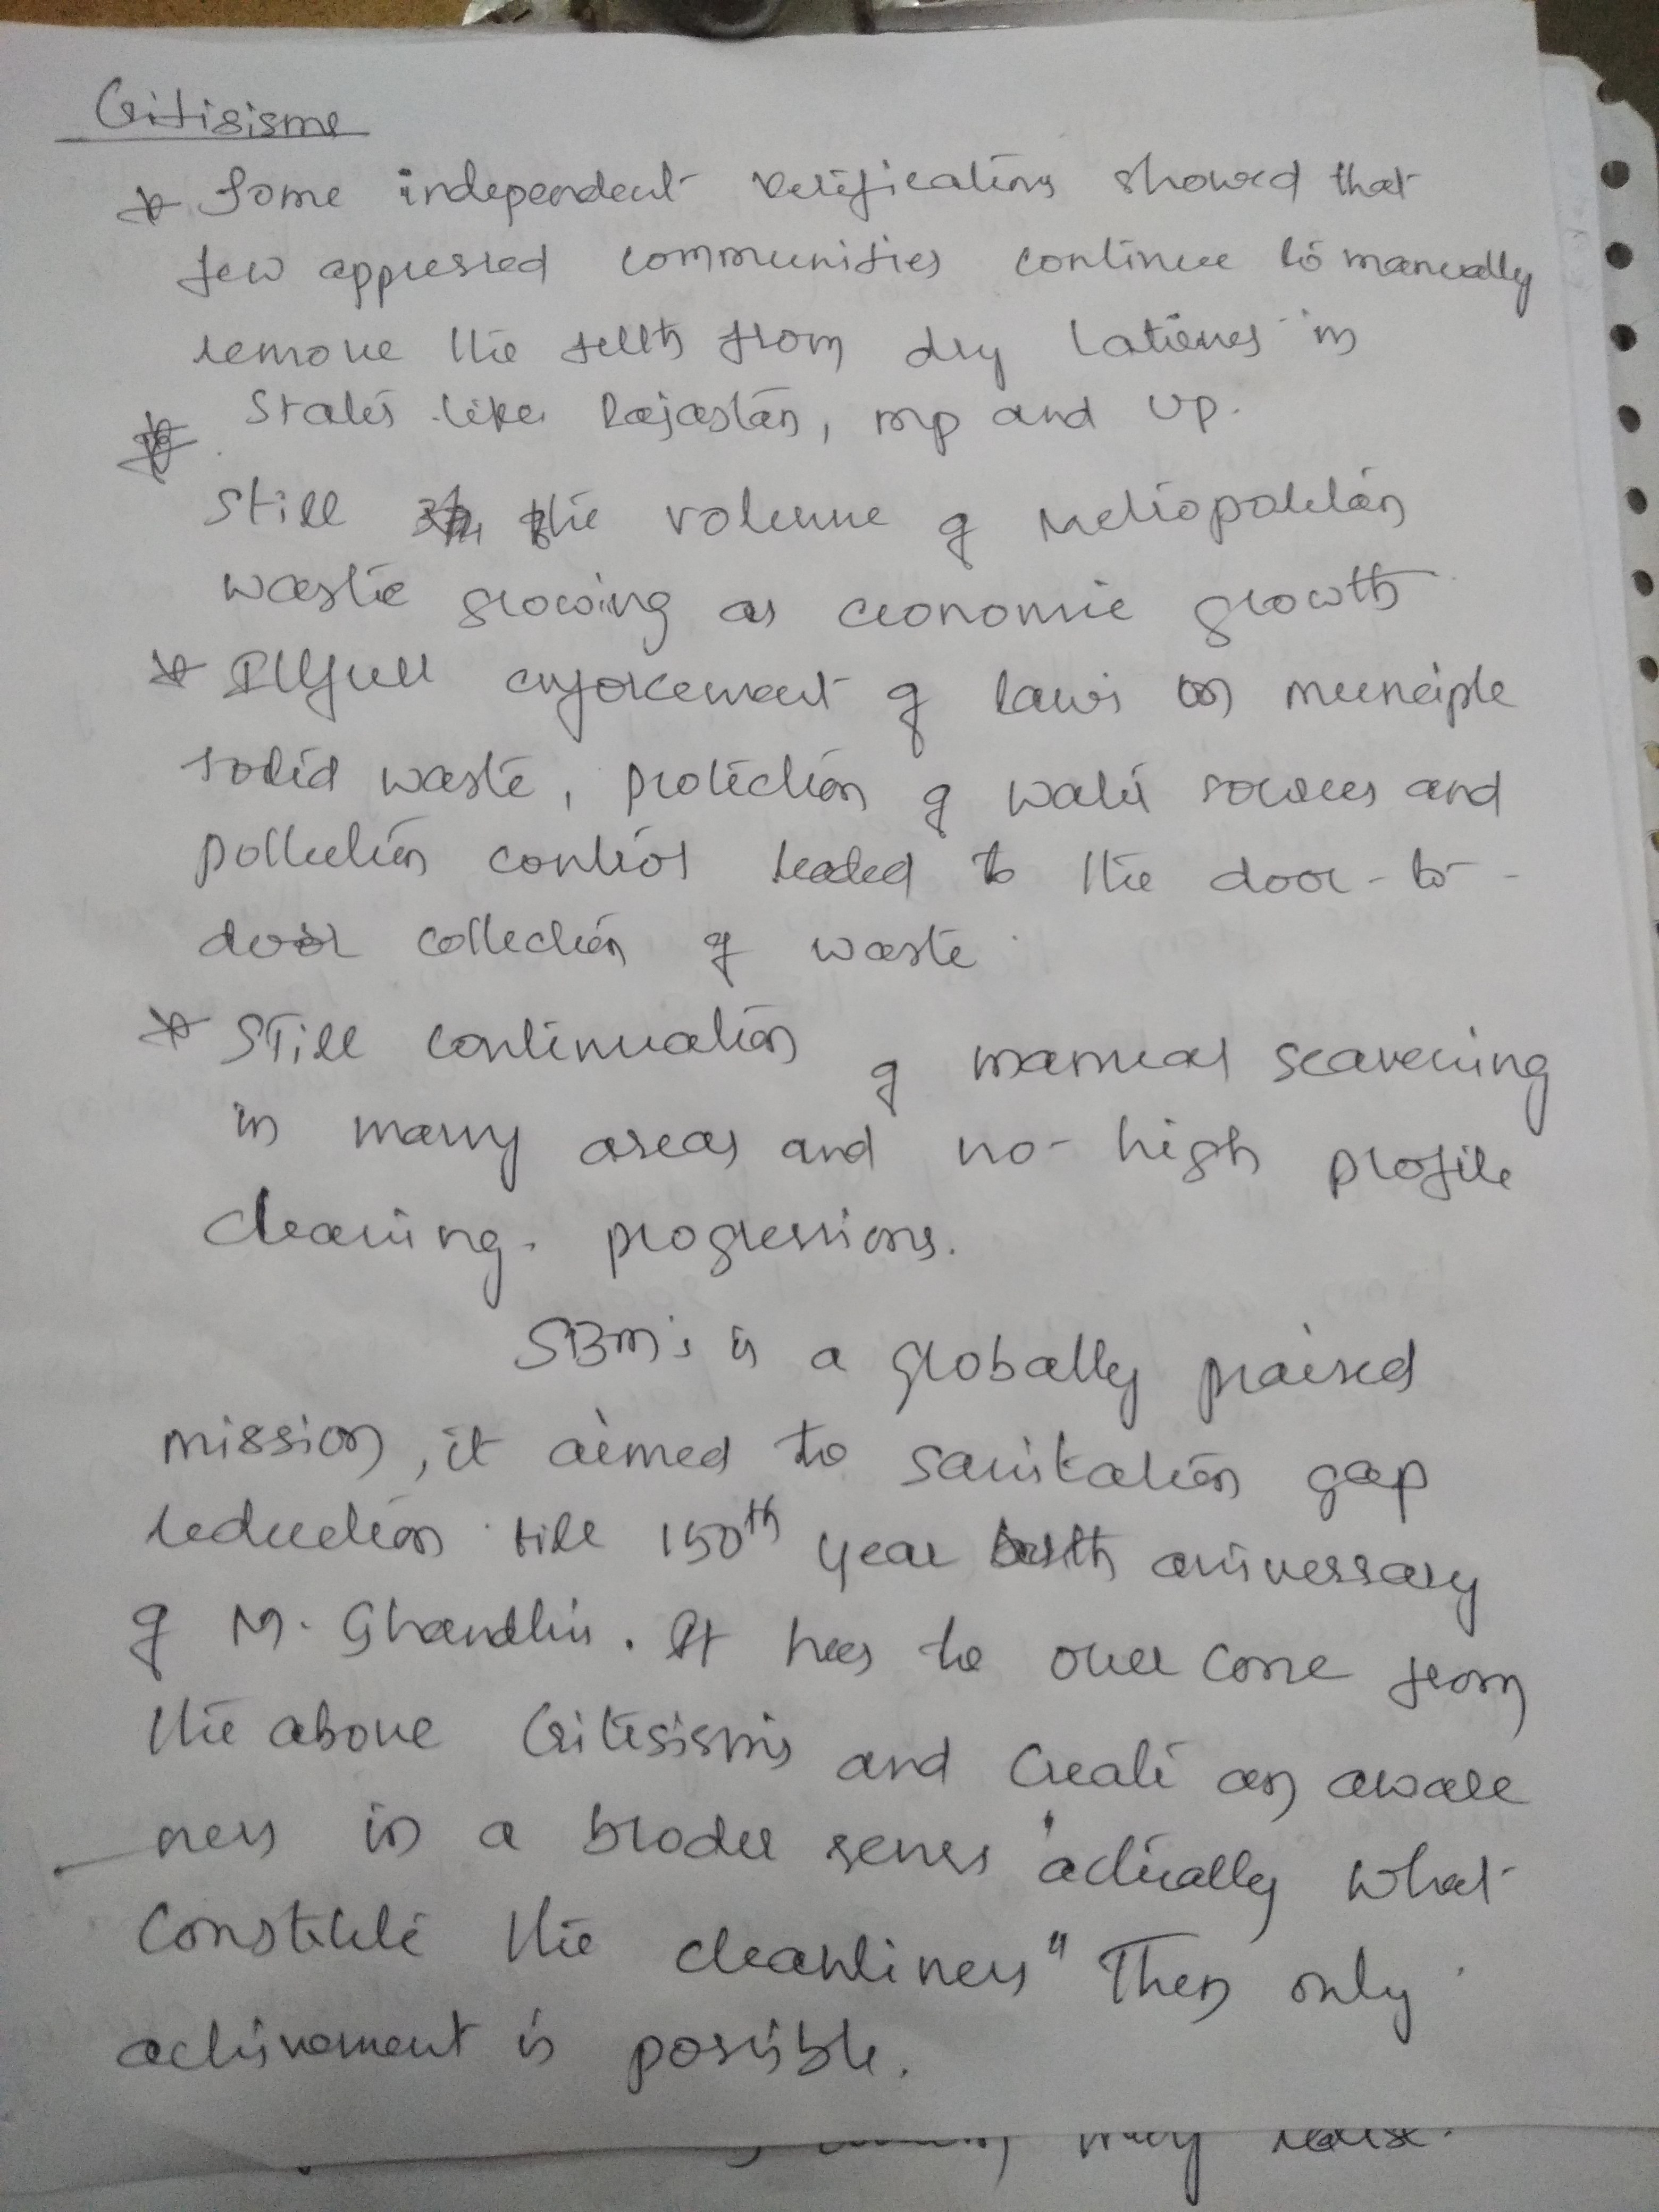 Critisisme
* Some independent verifications showed that
few appressed communities continue to manually
remove the filth from dry latienes in
States like Rajastan, mp and UP.
*
Still the volume of Metropolitan
waste growing as economic growth
* Illfull enforcement of laws on municiple
solid waste, protection of water sources and
pollution control leaded to the door-to-
door collection of waste
* Still continuation of manual scavening
in many areas and no-high profile
cleaning. progressions.
SBM's is a globally praised
mission, it aimed to sanitation gap
reduction till 150th year birth aniversary
of M. Ghandhi. It has to over come from
the above Critisisms and Create an aware
ness in a broder senes "actually what
Constitute the cleanliness" Then only
achivement is possible.
may